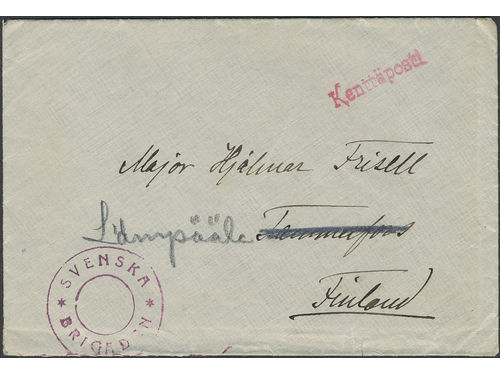 Kenttäposti
Major Hjalmar Frisell
Lämpäälä Tammerfors
Finland
* SVENSKA *
BRIGADEN